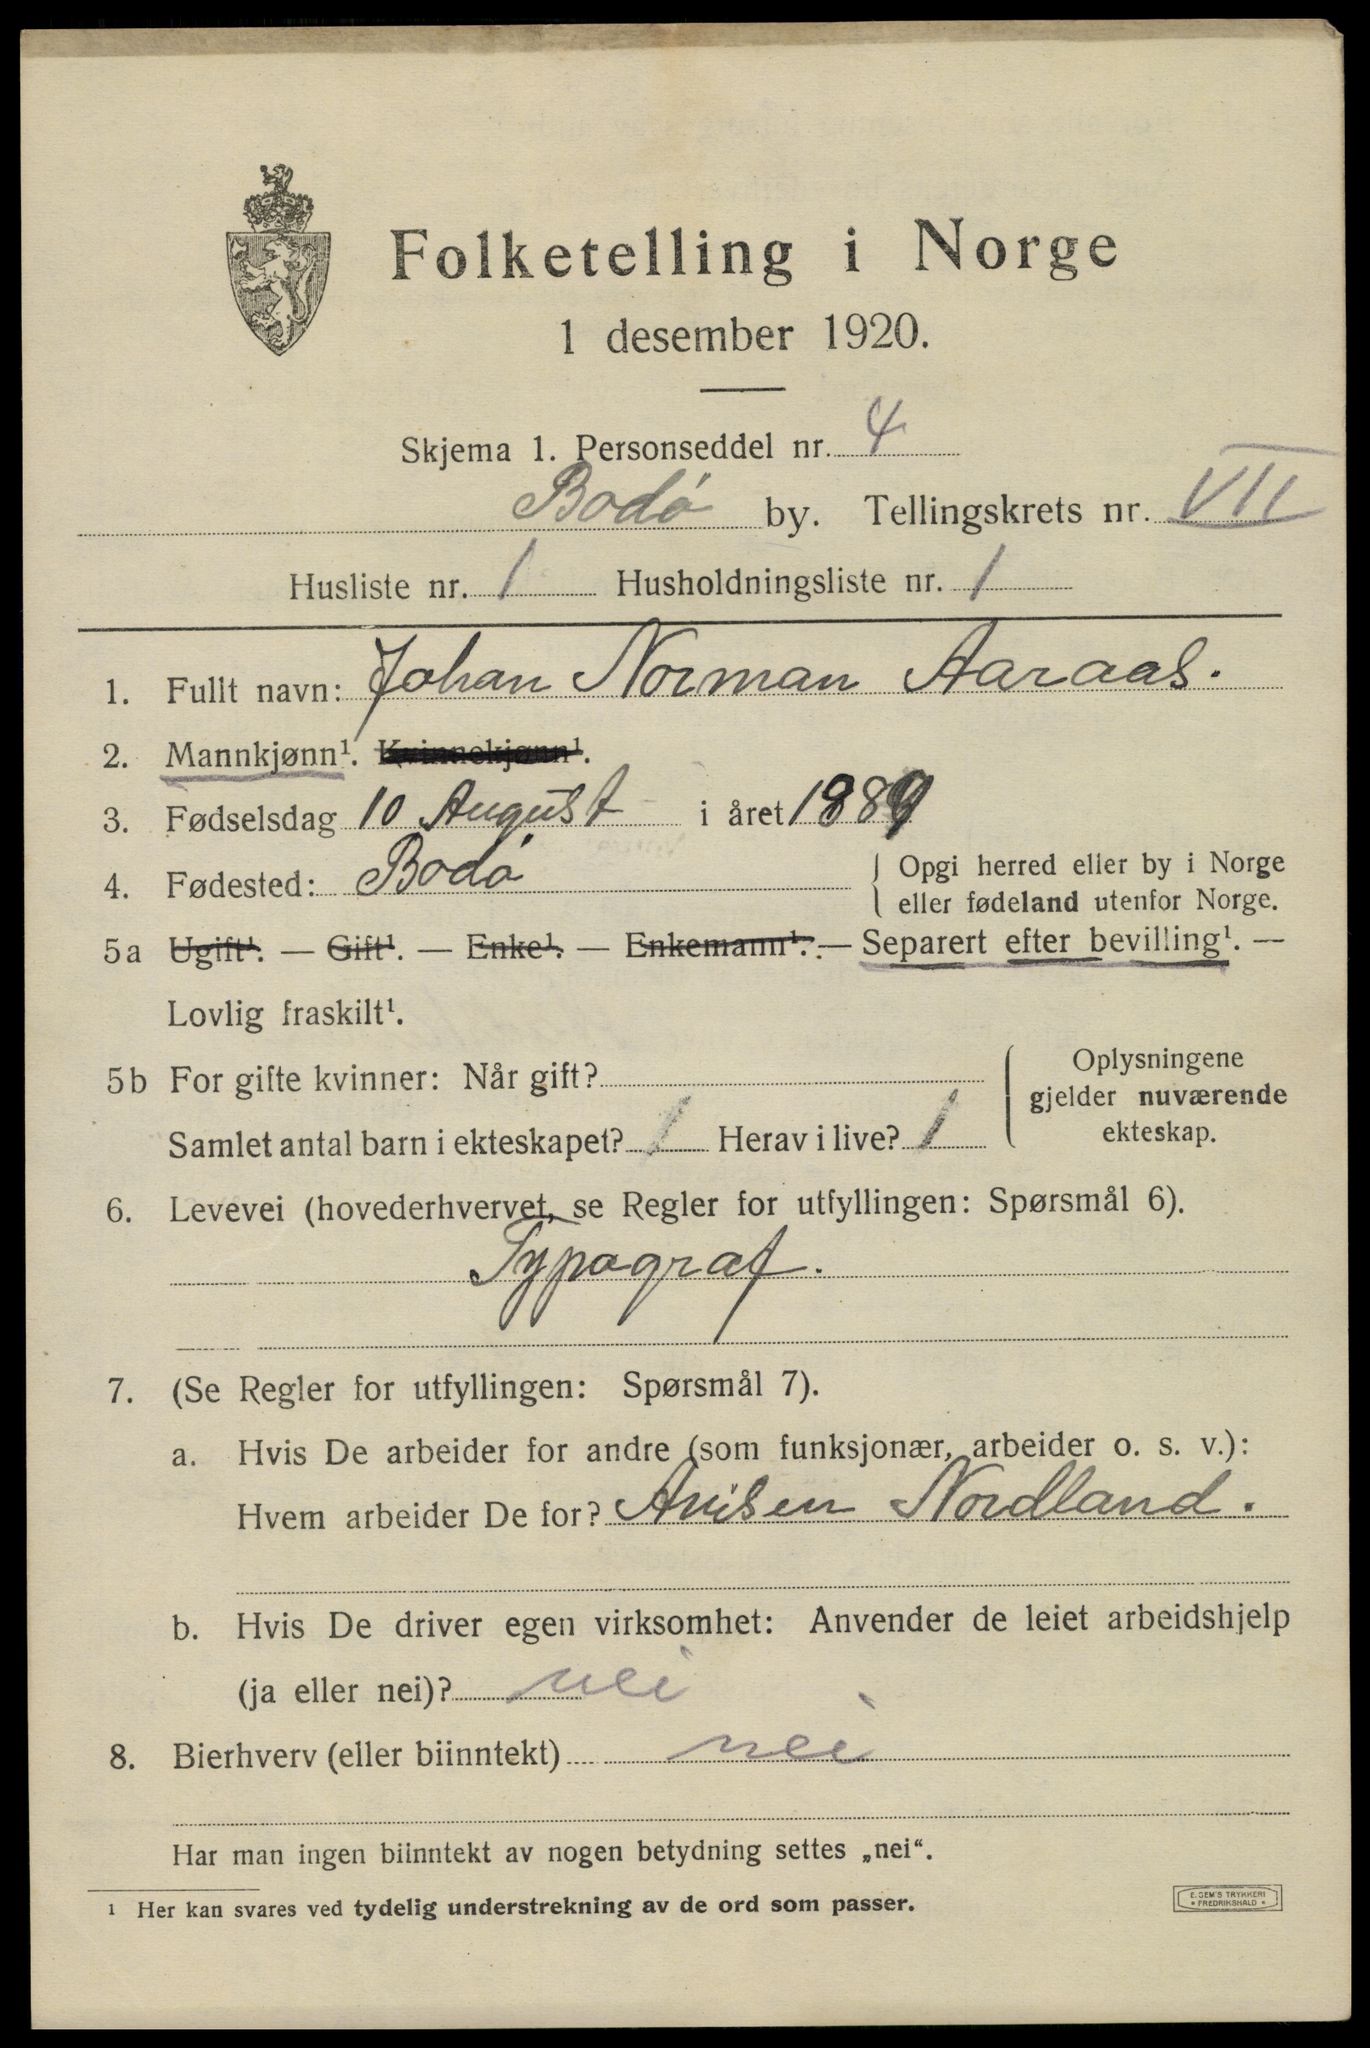 Folketelling i Norge
1 desember 1920.
Skjema 1. Personseddel nr. 4
Bodø by. Tellingskrets nr. VII
Husliste nr. 1 Husholdningsliste nr. 1
1. Fullt navn: Johan Norman Aaraas.
2. Mannkjønn¹. Kvinnekjønn¹.
3. Fødselsdag 10 August i året 1889
4. Fødested: Bodø { Opgi herred eller by i Norge
eller fødeland utenfor Norge.
5a Ugift¹. — Gift¹. — Enke¹. — Enkemann¹. — Separert efter bevilling¹. —
Lovlig fraskilt¹.
5b For gifte kvinner: Når gift?
Samlet antal barn i ekteskapet? 1 Herav i live? 1
Oplysningene
gjelder nuværende
ekteskap.
6. Levevei (hovederhvervet, se Regler for utfyllingen: Spørsmål 6).
Typograf.
7. (Se Regler for utfyllingen: Spørsmål 7).
a. Hvis De arbeider for andre (som funksjonær, arbeider o. s. v.):
Hvem arbeider De for? Avisen Nordland.
b. Hvis De driver egen virksomhet: Anvender de leiet arbeidshjelp
(ja eller nei)? nei
8. Bierhverv (eller biinntekt) nei
Har man ingen biinntekt av nogen betydning settes „nei“.
¹ Her kan svares ved tydelig understrekning av de ord som passer.
E. SEM'S TRYKKERI
• FREDRIKSHALD •